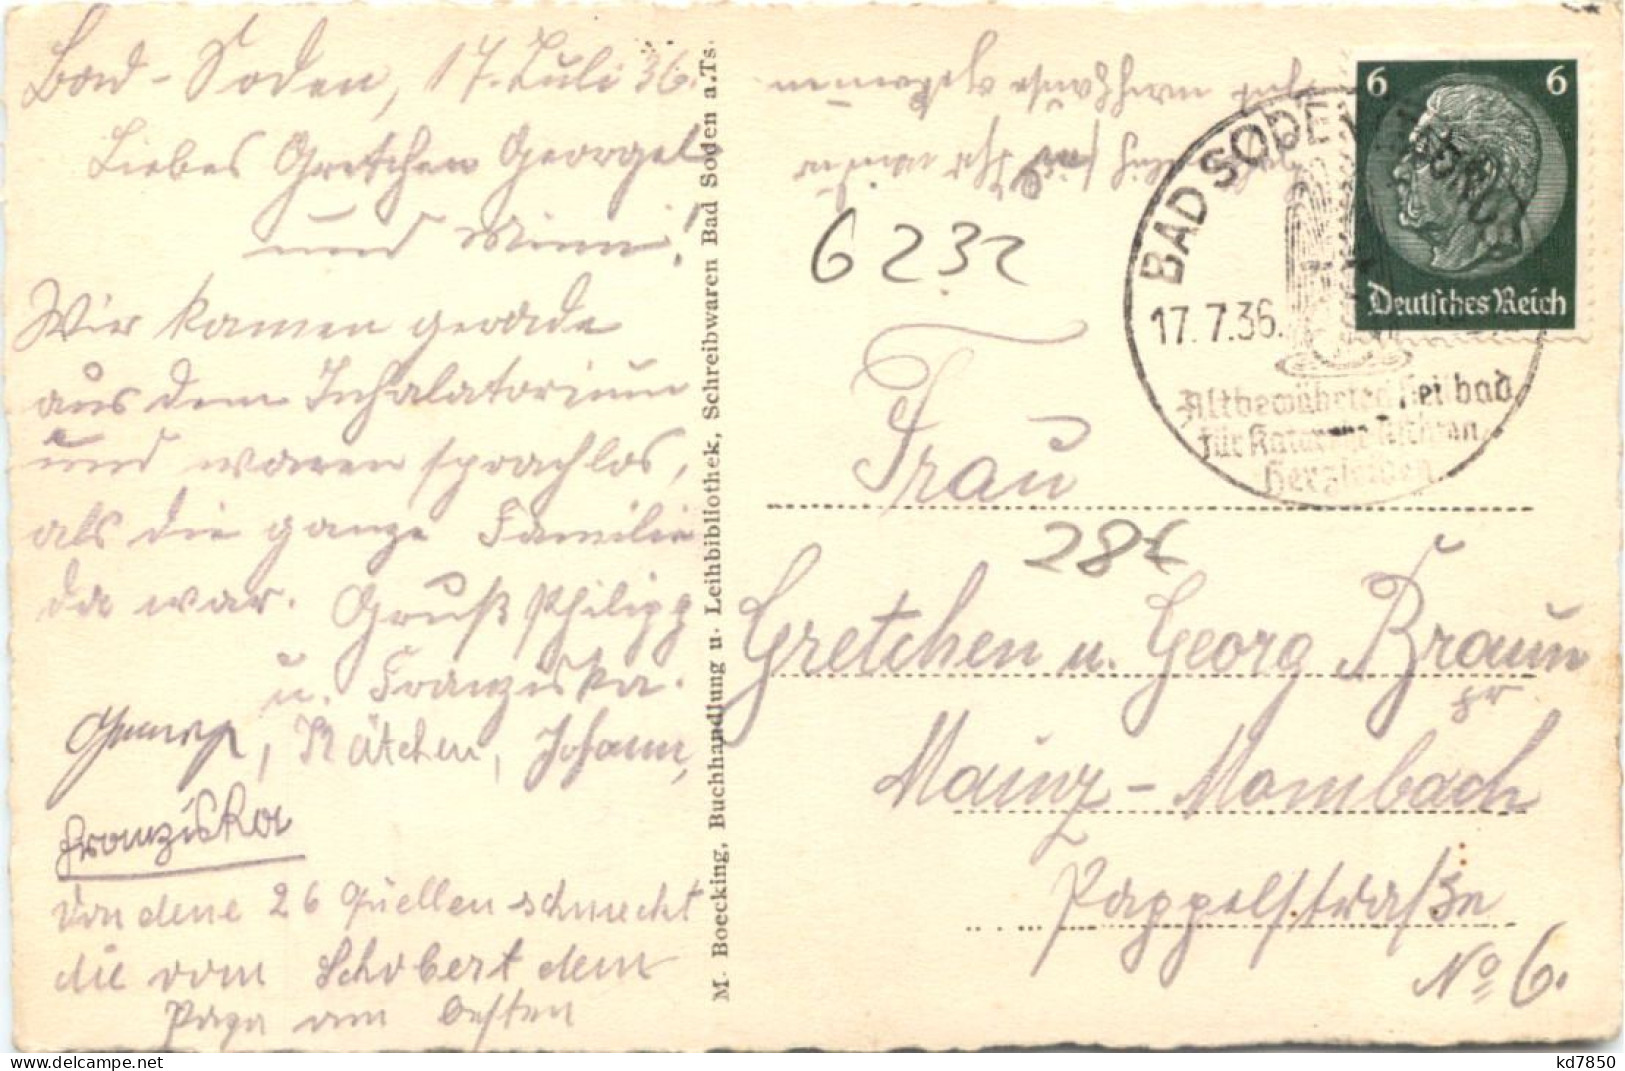 Bad-Soden, 17. Juli 36.
Liebes Gretchen Georgel
und Mimi!
Wir kamen gerade
aus dem Inhalatorium
und waren sprachlos,
als die ganze Familie
da war. Gruß Philipp
u. Franziska.
Kätchen, Johann,
Franziska
Von dene 26 Quellen schmeckt
die vom Schobert dem
Papa am besten
M. Boecking, Buchhandlung u. Leihbibliothek, Schreibwaren Bad Soden a. Ts.
gut nachhause gekommen
6232
6 6
Deutsches Reich
BAD SODEN
17.7.36.
Altbewährtes Heilbad
für Katarrhe Asthma,
Herzleiden
Frau
286
Gretchen u. Georg Braun
Mainz-Mombach
Pappelstraße
No 6.
kd7850